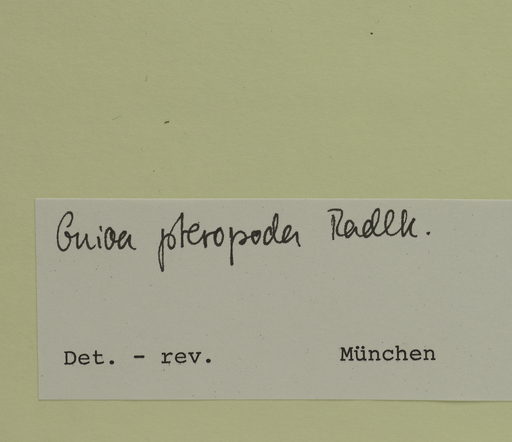 Guioa pteropoda Radlk.
Det. - rev. München